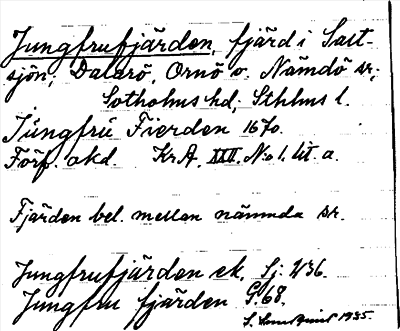 Jungfrufjärden, fjärd i Salt-
sjön; Dalarö, Ornö o. Nämdö sr;
Sotholms hd, Sthlms l.
Jungfrŭ Fierden 1670.
Förf. okd. KrA. XXII. No 1. lit. a.
Fjärden bel. mellan nämnda sr.
Jungfrufjärden ek. Sj: 236.
Jungfru fjärden G:68.
1935